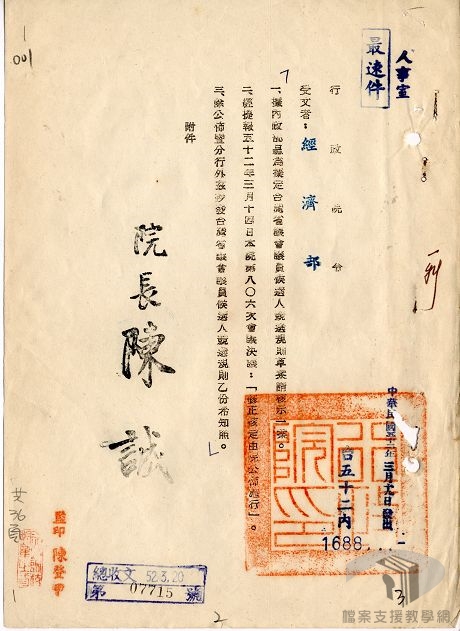 人事室
最速件
行政院令
受文者：經濟部
一、據內政部呈為擬定台灣省議會議員候選人競選規則草案請核示一案。
二、經提報五十二年三月十四日本院第八〇六次會議決議：「修正核定由院公佈施行」。
三、除公佈暨分行外茲抄發台灣省議會議員候選人競選規則乙份希知照。
附件
院長陳誠
中華民國五十二年三月九日發出
台五十二內
1688
行政院印
監印 陳登甲
總收文 52.3.20
第 07715 號
共36頁
001
2
3
檔案支援教學網